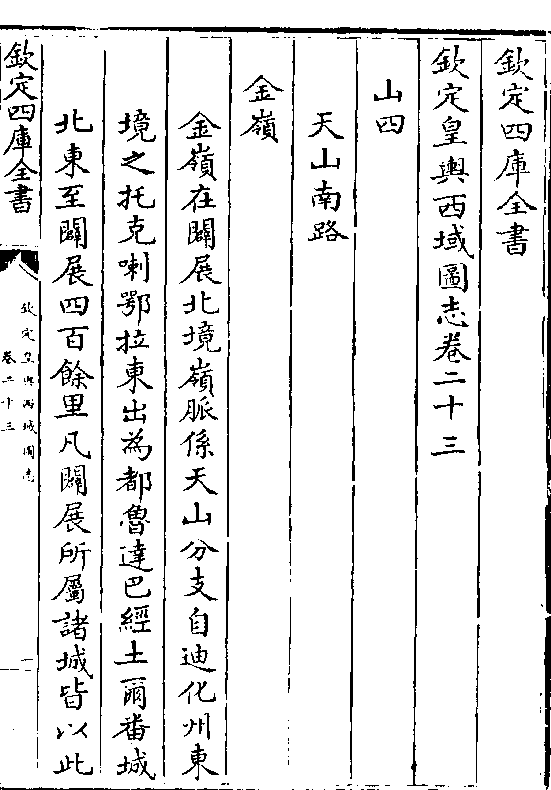 欽定四庫全書
欽定皇輿西域圖志卷二十三
山四
天山南路
金嶺
金嶺在闢展北境嶺脈係天山分支自迪化州東
境之托克喇鄂拉東出為都魯達巴經土爾番城
北東至闢展四百餘里凡闢展所屬諸城皆以此
欽定四庫全書
欽定皇輿西域圖志
卷二十三
一